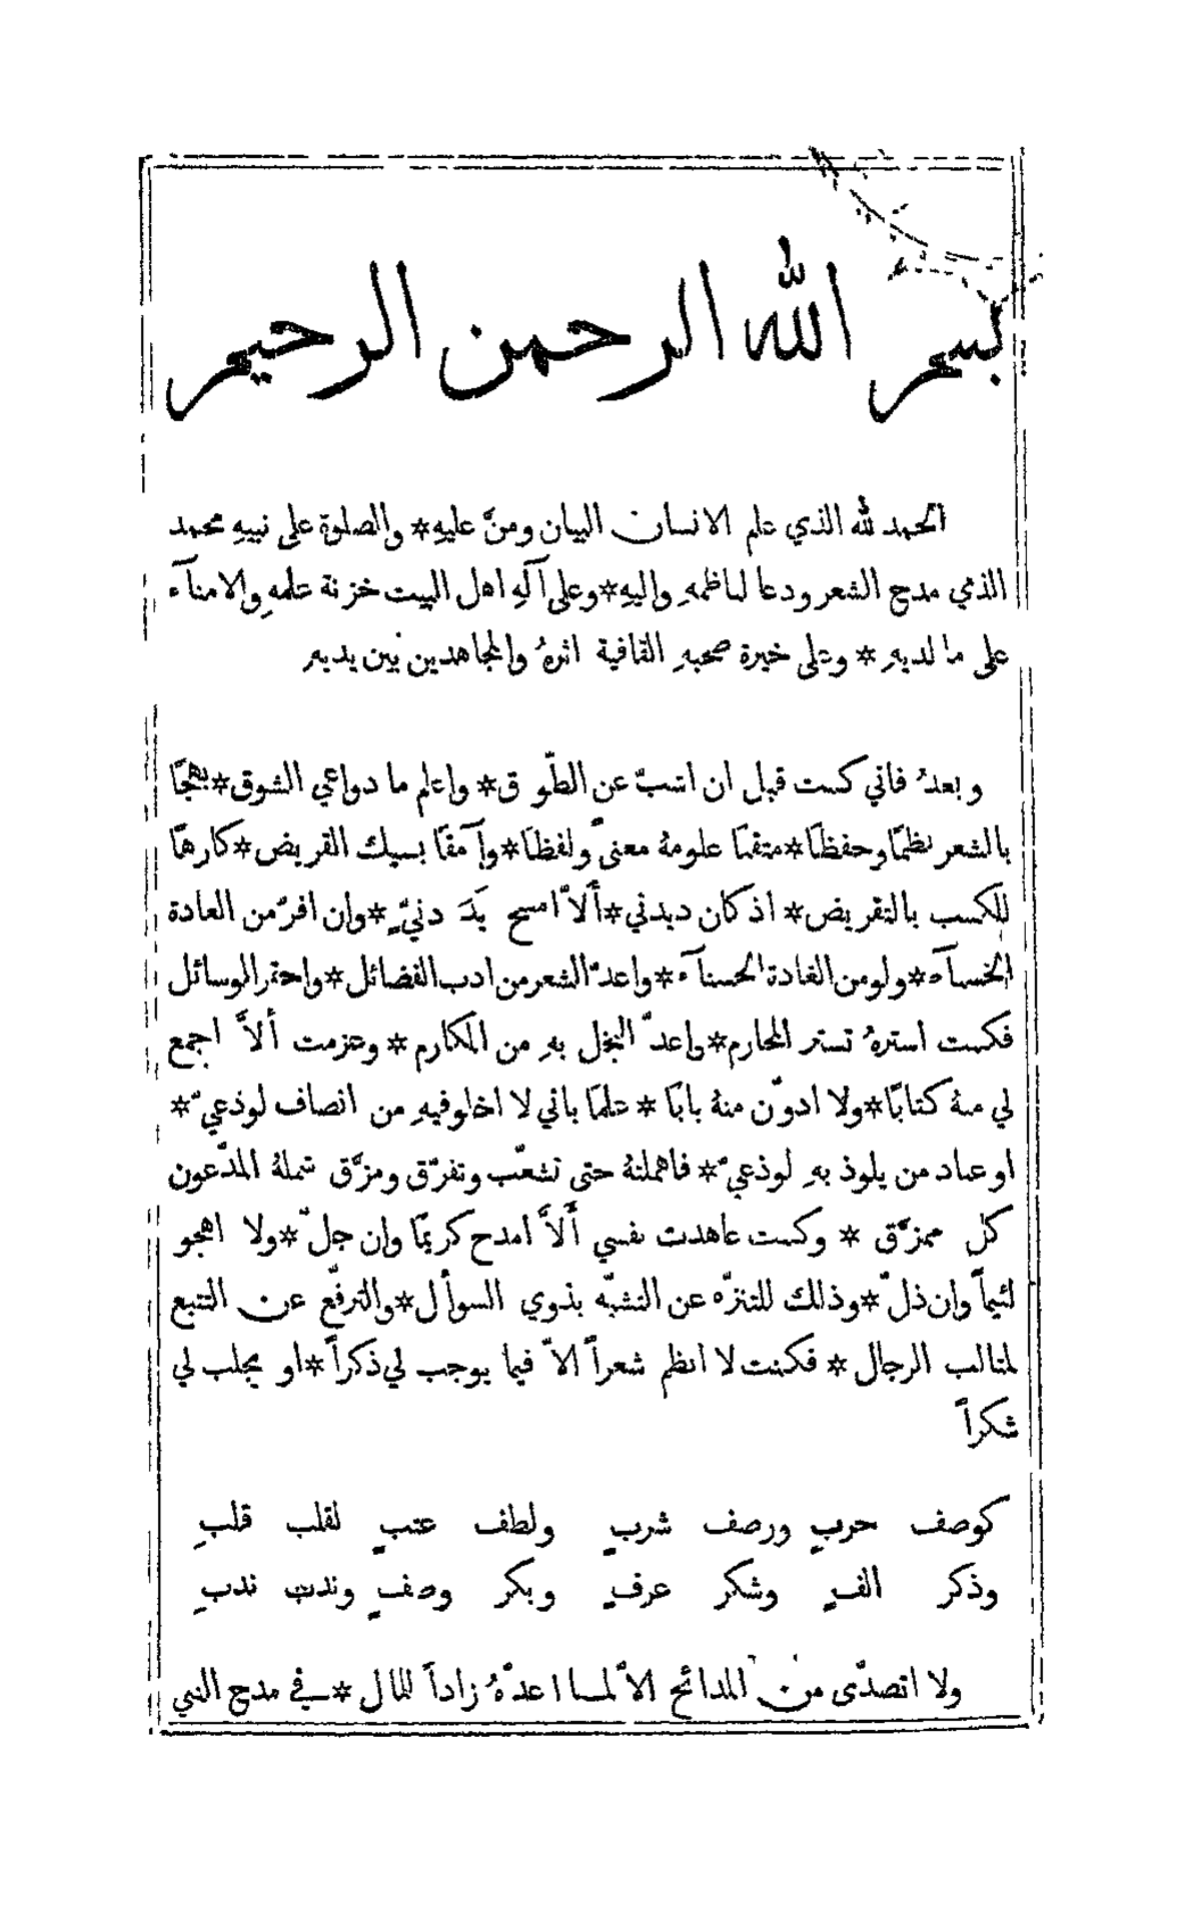 بسم الله الرحمن الرحيم
الحمد لله الذي علم الانسان البيان ومنَّ عليهِ* والصلوة على نبيهِ محمد
الذي مدح الشعر ودعا لناظمهِ واليهِ*وعلى آلهِ اهل البيت خزنة علمهِ والامنآء
على ما لديهِ * وعلى خيرة صحبهِ القافية اثرهُ والمجاهدين بين يديهِ
وبعدُ فاني كنت قبل ان اشبّ عن الطّوق* واعلم ما دواعي الشوق*لهجًا
بالشعر نظمًا وحفظًا*متقنًا علومهُ معنىً ولفظًا*وآمقًا بسبك القريض*كارهًا
للكسب بالتقريض* اذ كان ديدني*ألاّ امسح يَدَ دنيٍّ*وان افرّ من العادة
الخسنآء*ولو من الغادة الحسنآء*واعدّ الشعر من ادب الفضائل*واحتقر الوسائل
فكنت استرهُ تستر المحارم*واعدّ البخل بهِ من المكارم* وعزمت ألاَّ اجمع
لي منهُ كتابًا*ولا ادوّن منهُ بابًا * علمًا باني لا اخلو فيهِ من انصاف لوذعيّ*
او عناد من يلوذ بهِ لوذعيّ* فاهملتهُ حتى تشعّب وتفرّق ومزَّق شملهُ المدّعون
كل ممزَّق * وكنت عاهدت نفسي ألاَّ امدح كريمًا وان جلّ*ولا اهجو
لئيماً وان ذلّ*وذلك للتنزّه عن التشبّه بذوي السوأل*والترفّع عن التتبع
لمثالب الرجال* فكنت لا انظم شعراً الاّ فيما يوجب لي ذكراً*او يجلب لي
شكراً
كوصف حربٍ ورصف شربٍ ولطف عتبٍ لقلب قلبِ
وذكر الفٍ وشكر عرفٍ وبكر وصفٍ وندت ندبِ
ولا اتصدّى من المدائح الاّ لما اعدّهُ زاداً للمال*في مدح النبي